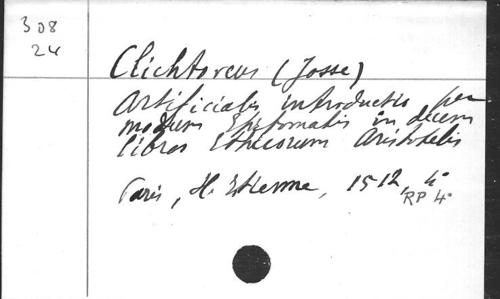 308
24
Clichtoveus (Josse)
Artificialis introductio per
modum Epitomatis in decem
libros Ethicorum Aristotelis
Paris, H. Estienne, 1512, 4°
RP 4°